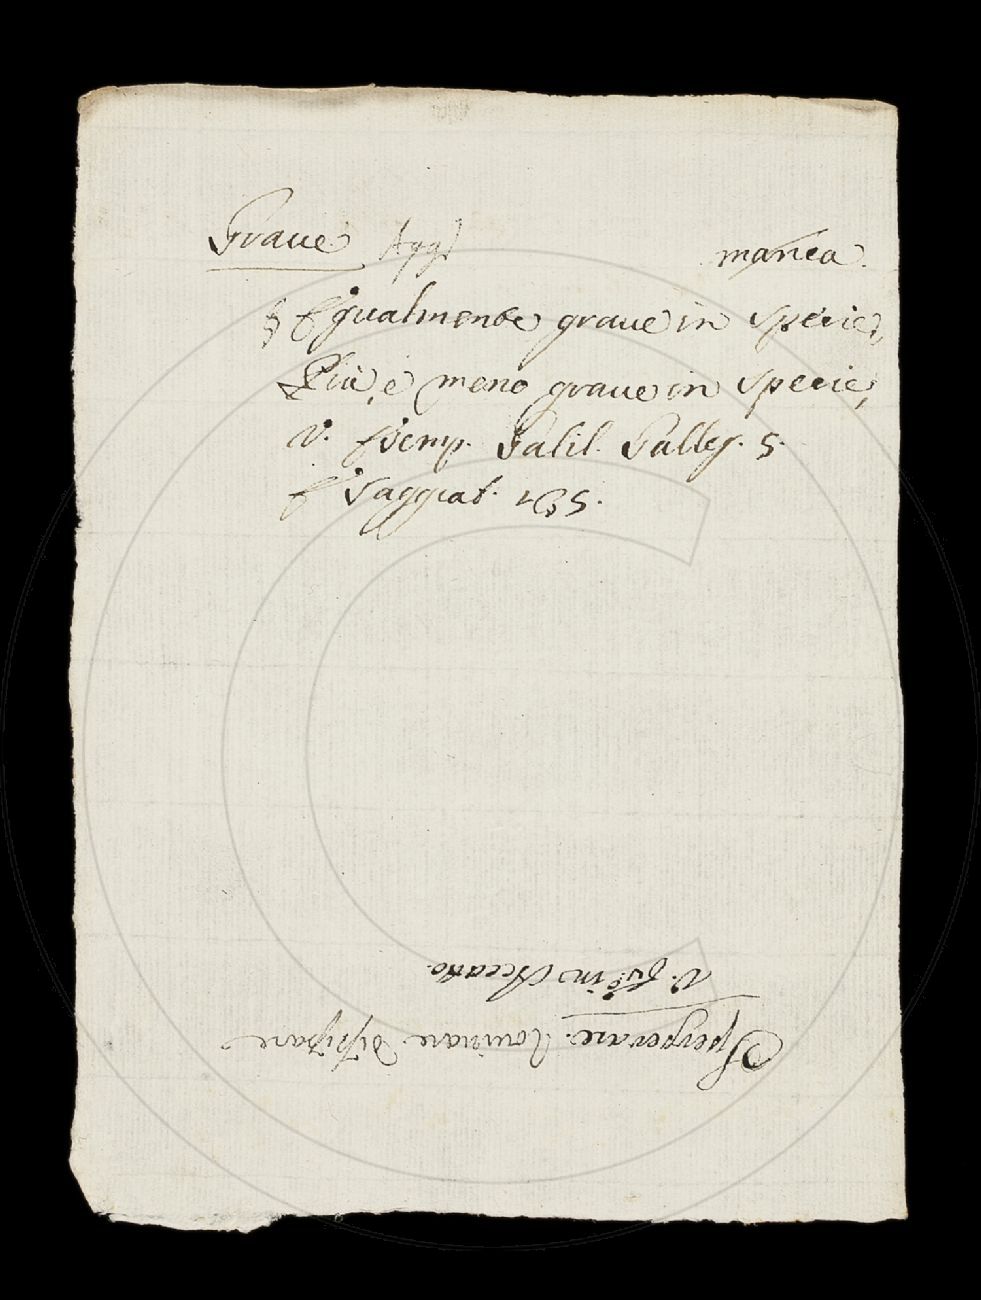 Graue Agg.
manca.
§ Egualmente graue in specie,
Più, e meno graue in specie,
V. Esemp. Galil. Galleg. 5.
E Saggiat. 165.
Sperperare. Rouinare dissipare
V. in Accatto.